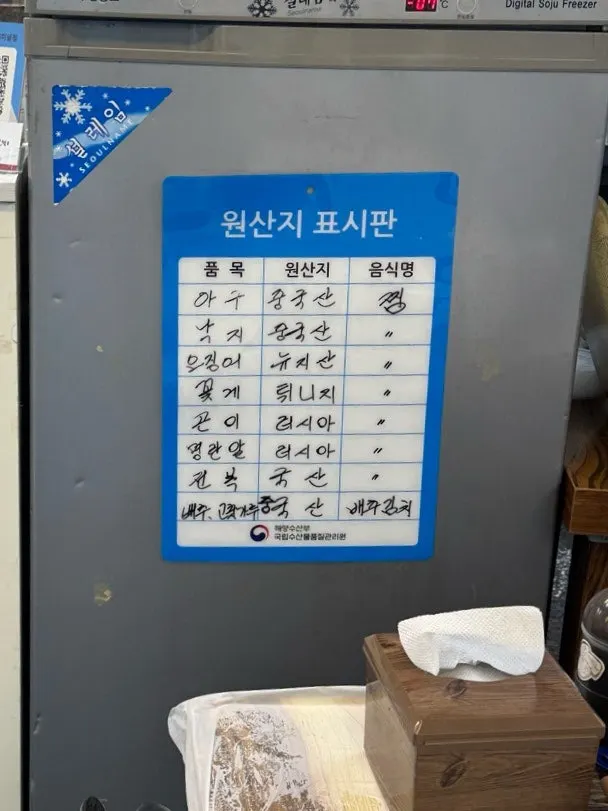 -07 °C
Digital Soju Freezer
설레임
SEOULNAME
원산지 표시판
품 목 원산지 음식명
아 구 중국산 찜
낙 지 중국산 〃
오징어 뉴지산 〃
꽃 게 튀니지 〃
곤 이 러시아 〃
명란알 러시아 〃
전 복 국 산 〃
배추, 고춧가루 중국 산 배추김치
해양수산부
국립수산물품질관리원